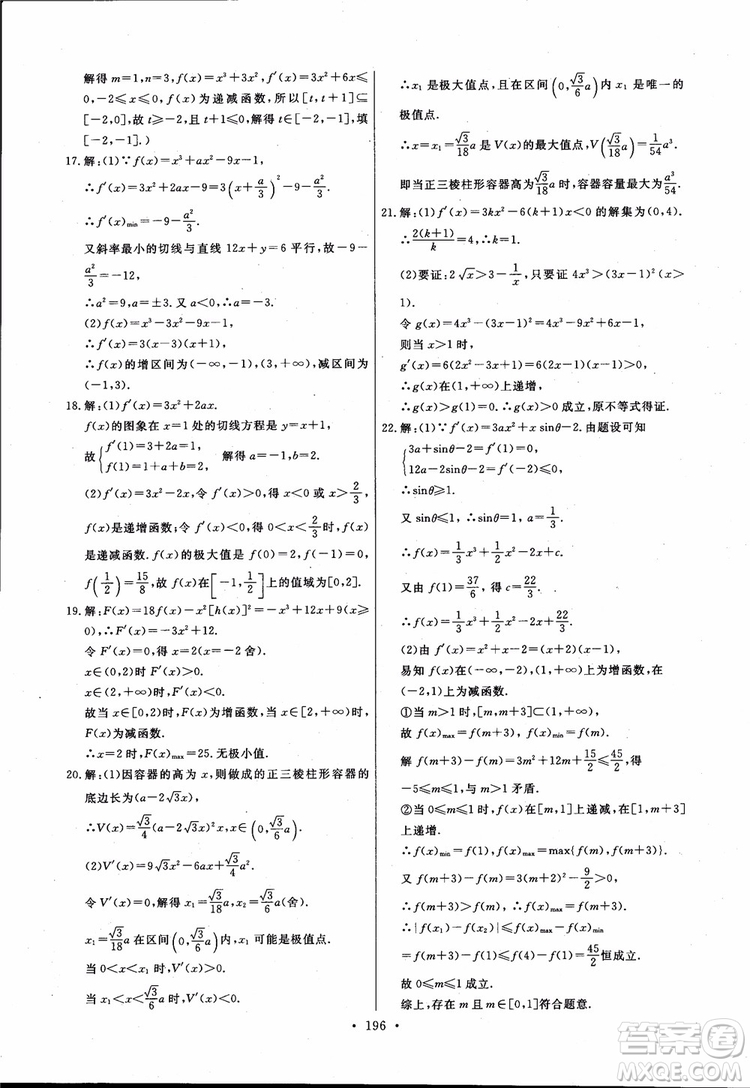 解得 m=1,n=3,f(x)=x³+3x²,f′(x)=3x²+6x≤
0,-2≤x≤0,f(x)为递减函数,所以[t,t+1]⊆
[-2,0],故 t≥-2,且 t+1≤0,所以 t∈[-2,-1],填
[-2,-1].)
17.解:(1)∵f(x)=x³+ax²-9x-1,
∴f′(x)=3x²+2ax-9=3(x+a/3)²-9-a²/3.
∴f′(x)min=-9-a²/3.
又斜率最小的切线与直线 12x+y=6 平行,故-9-
a²/3=-12,
∴a²=9,a=±3.又 a<0,∴a=-3.
(2)f(x)=x³-3x²-9x-1,
∴f′(x)=3(x-3)(x+1).
∴f(x)的增区间为(-∞,-1),(3,+∞),减区间为
(-1,3).
18.解:(1)f′(x)=3x²+2ax.
f(x)的图象在 x=1 处的切线方程是 y=x+1,
故{f′(1)=3+2a=1, f(1)=1+a+b=2, 解得{a=-1, b=2.
(2)f′(x)=3x²-2x,令 f′(x)>0,得 x<0 或 x>2/3,
f(x)是递增函数;令 f′(x)<0,得 0<x<2/3时,f(x)
是递减函数.f(x)的极大值是 f(0)=2,f(-1)=0,
f(1/2)=15/8,故 f(x)在[-1,1/2]上的值域为[0,2].
19.解:F(x)=18f(x)-x²[h(x)]²=-x³+12x+9(x≥
0),∴F′(x)=-3x²+12.
令 F′(x)=0,得 x=2(x=-2 舍).
x∈(0,2)时 F′(x)>0.
x∈(2,+∞)时,F′(x)<0.
故当 x∈[0,2)时 F(x)为增函数,当 x∈[2,+∞)时,
F(x)为减函数.
∴x=2 时,F(x)max=25.无极小值.
20.解:(1)因容器的高为 x,则做成的正三棱柱形容器的
底边长为(a-2√3x),
∴V(x)=√3/4(a-2√3x)²x,x∈(0,√3/6a).
(2)V′(x)=9√3x²-6ax+√3/4a².
令 V′(x)=0,解得 x₁=√3/18a,x₂=√3/6a(舍).
x₁=√3/18a 在区间(0,√3/6a)内,x₁ 可能是极值点.
当 0<x<x₁ 时,V′(x)>0;
当 x₁<x<√3/6a 时,V′(x)<0.
∴x₁ 是极大值点,且在区间(0,√3/6a)内 x₁ 是唯一的
极值点.
∴x=x₁=√3/18a 是 V(x)的最大值点,V(√3/18a)=1/54a³.
即当正三棱柱形容器高为√3/18a 时,容器容量最大为a³/54.
21.解:(1)f′(x)=3kx²-6(k+1)x<0 的解集为(0,4).
∴2(k+1)/k=4,∴k=1.
(2)要证:2√x>3-1/x,只要证 4x³>(3x-1)²(x>
1).
令 g(x)=4x³-(3x-1)²=4x³-9x²+6x-1,
则当 x>1 时,
g′(x)=6(2x²-3x+1)=6(2x-1)(x-1)>0,
∴g(x)在(1,+∞)上递增,
∴g(x)>g(1)=0.∴g(x)>0 成立,原不等式得证.
22.解:(1)∵f′(x)=3ax²+x sinθ-2.由题设可知
{f′(1)=0, f′(-2)=0, 即{3a+sinθ-2=0, 12a-2sinθ-2≤0,
∴sinθ≥1.
又 sinθ≤1,∴sinθ=1,a=1/3.
∴f(x)=1/3x³+1/2x²-2x+c.
又由 f(1)=37/6,得 c=22/3.
∴f(x)=1/3x³+1/2x²-2x+22/3.
(2)由 f′(x)=x²+x-2=(x+2)(x-1).
易知 f(x)在(-∞,-2)及(1,+∞)上为增函数,在
(-2,1)上为减函数.
①当 m>1 时,[m,m+3]⊂(1,+∞)上递增.
故 f(x)max=f(m+3),f(x)min=f(m).
解 f(m+3)-f(m)=3m²+12m+15/2≤45/2,得
-5≤m≤1,与 m>1 矛盾.
②当 0≤m≤1 时,f(x)在[m,1]上递减,在[1,m+3]
上递增.
∴f(x)min=f(1),f(x)max=max{f(m),f(m+3)}.
又 f(m+3)-f(m)=3(m+2)²-9/2>0,
∴f(m+3)>f(m),∴f(x)max=f(m+3).
∴|f(x₁)-f(x₂)|≤f(x)max-f(x)min
=f(m+3)-f(1)≤f(4)-f(1)=45/2恒成立.
故 0≤m≤1 成立.
综上,存在 m 且 m∈[0,1]符合题意.
196
答案圈
MXQE.COM